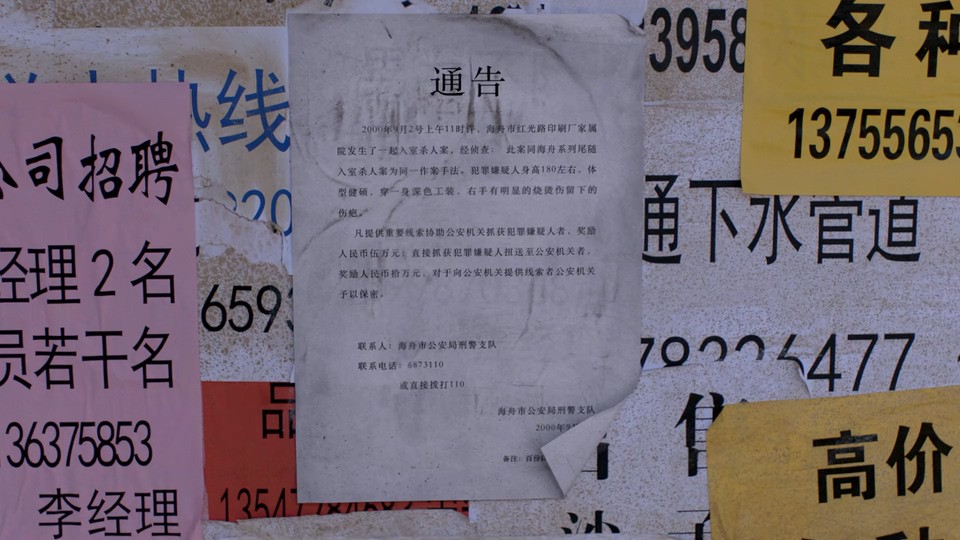 通告
2000年9月2号上午11时许，海舟市红光路印刷厂家属
院发生了一起入室杀人案。经侦查： 此案同海舟系列尾随
入室杀人案为同一作案手法。犯罪嫌疑人身高180左右，体
型健硕，穿一身深色工装，右手有明显的烧烫伤留下的
伤疤。
凡提供重要线索协助公安机关抓获犯罪嫌疑人者，奖励
人民币伍万元；直接抓获犯罪嫌疑人扭送至公安机关者，
奖励人民币拾万元。对于向公安机关提供线索者公安机关
予以保密。
联系人：海舟市公安局刑警支队
联系电话：6873110
或直接拨打110
海舟市公安局刑警支队
2000年9
备注：
公司招聘
经理2名
员若干名
36375853
李经理
热线
320
6593
品
13958
各种
13755653
通下水官道
78226477
售
高价